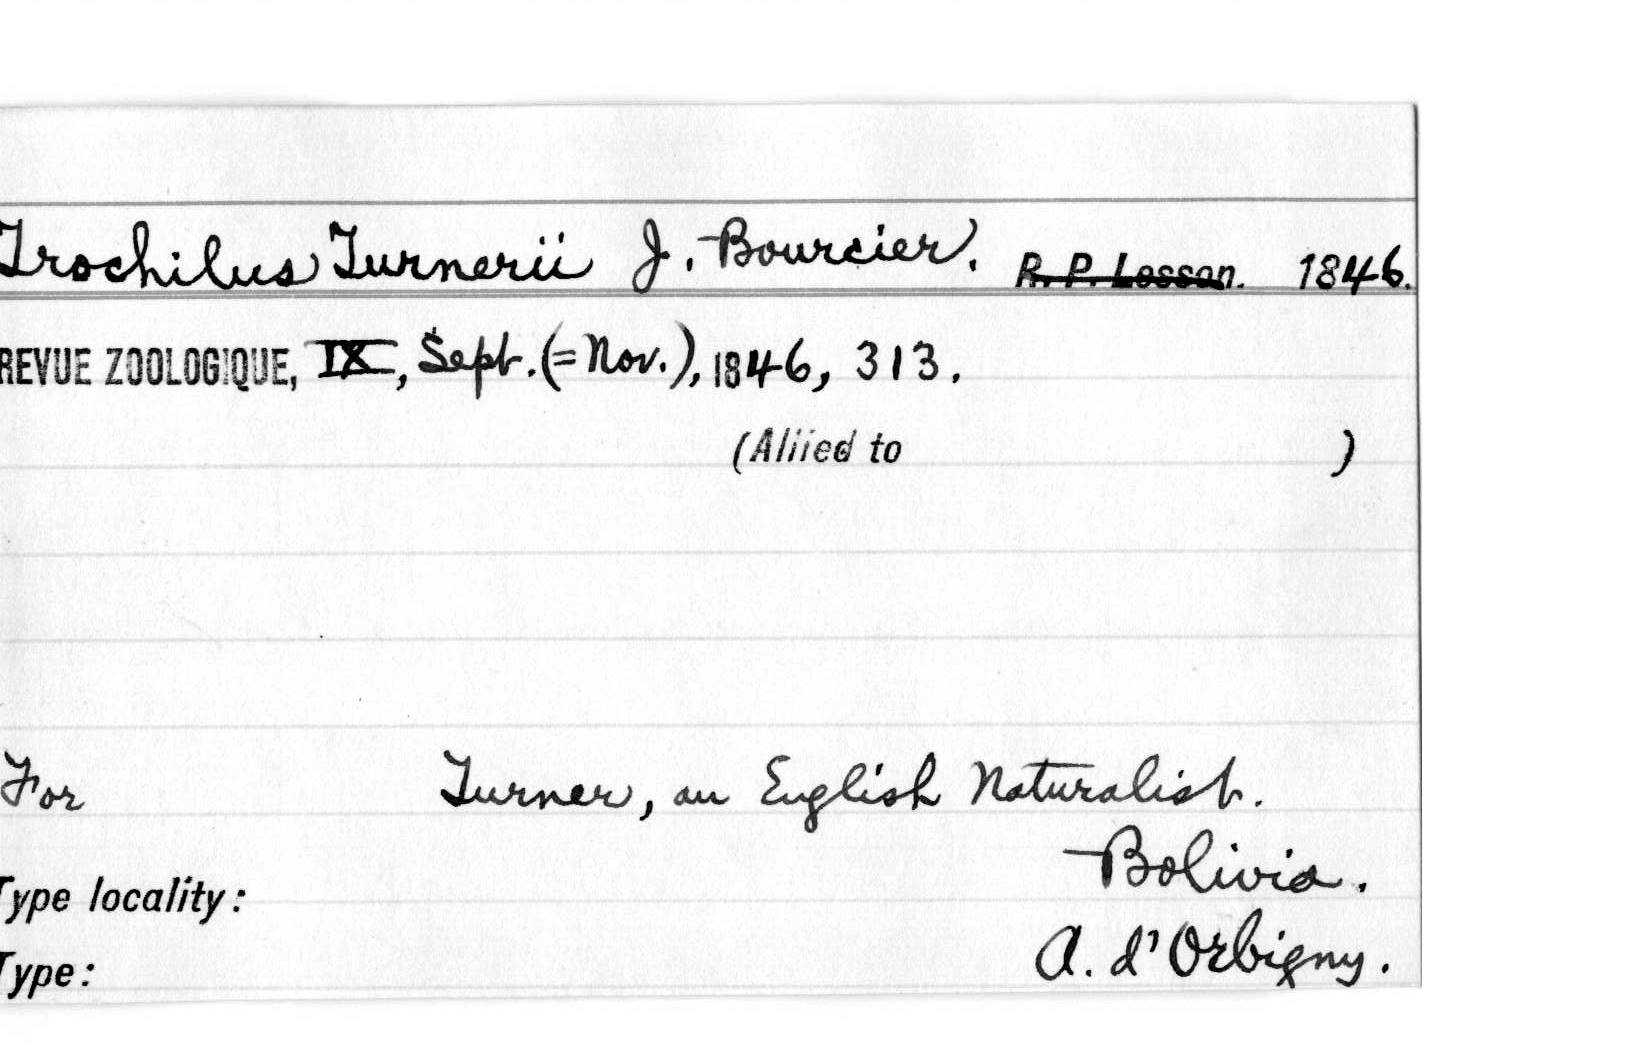 Trochilus Turnerii J. Bourcier. R. P. Lesson. 1846.
REVUE ZOOLOGIQUE, IX, Sept. (=Nov.), 1846, 313.
(Allied to )
For Turner, an English Naturalist.
Bolivia.
Type locality:
A. d'Orbigny.
Type: